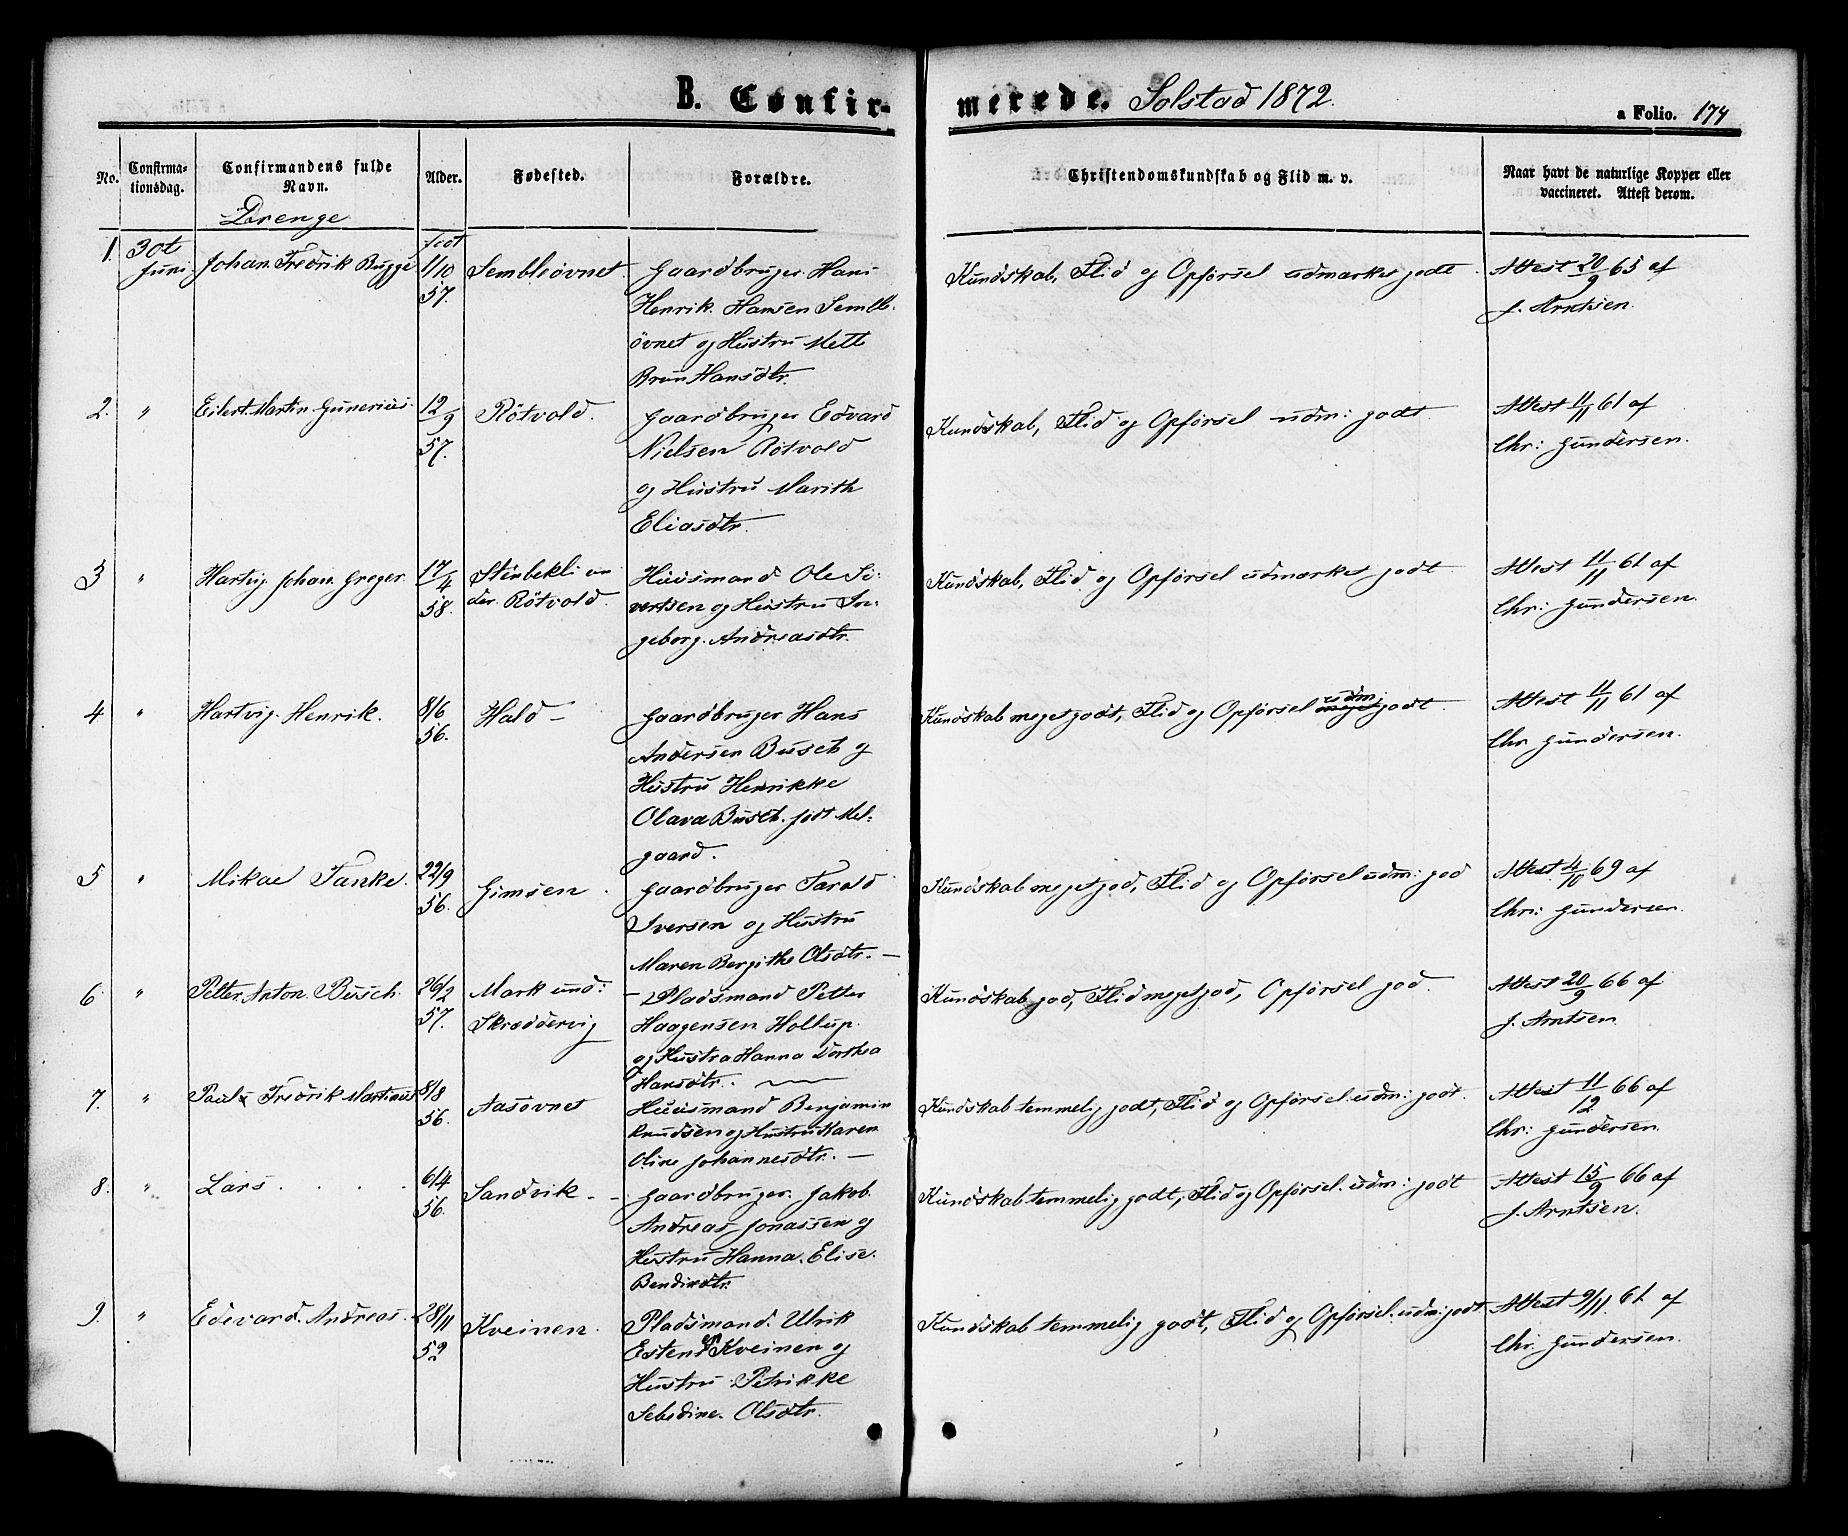 B. Confirmerede. Solstad 1872.
a Folio. 174
No.
Confirmationsdag.
Confirmandens fulde Navn.
Alder.
Fødested.
Forældre.
Christendomskundskab og Flid m. v.
Naar havt de naturlige Kopper eller vaccineret. Attest derom.
Drenge
1. 30t Juni Johan Fredrik Bugge født 1/10 57. Sembleøvnet Gaardbruger Hans
Henrik Hansen Semble-
øvnet og Hustru Mette
Brun Hansdtr.
Kundskab, Flid og Opførsel udmærket godt Attest 20/9 65 af
J. Arntsen.
2. " Eilert Martin Gunerius 12/9 57. Rötvold. Gaardbruger Edvard
Nielsen Rötvold
og Hustru Marith
Eliasdtr.
Kundskab, Flid og Opførsel udm: godt Attest 11/11 61 af
Chr: Gundersen.
3 " Hartvig Johan Greger 17/4 58. Stenbekli un-
der Rötvold. Huusmand Ole Si-
vertsen og Hustru In-
geborg Andreasdtr.
Kundskab, Flid og Opførsel udmærket godt Attest 11/11 61 af
Chr: Gundersen.
4 " Hartvig Henrik. 8/6 56. Hald - Gaardbruger Hans
Andersen Busch og
Hustru Henrikke
Olava Busch født Mel-
gaard.
Kundskab meget godt, Flid og Opførsel udm: meget godt. Attest 11/11 61 af
Chr Gundersen.
5 " Mikae Tanke. 22/9 56. Gimsen. Gaardbruger Tarald
Iversen og Hustru
Maren Bergithe Olsdtr. -
Kundskab meget god, Flid og Opførsel udm: god Attest 4/10 69 af
Chr: Gundersen.
6. " Petter Anton Busch. 26/2 57. Mark und:
Skræddervig - Pladsmand Petter
Haagensen Holtup
og Hustru Hanna Dorthea
Hansdtr.
Kundskab god, Flid meget god, Opførsel god. Attest 20/9 66 af
J. Arntsen.
7. " Paul Fredrik Martinus 8/8 56. Aasövnet Huusmand Benjamin
Knudsen og Hustru Karen
Oline Johannesdtr. -
Kundskab temmelig godt, Flid og Opførsel udm: godt. Attest 11/12 66 af
Chr: Gundersen.
8. " Lars 6/4 56. Sandvik - Gaardbruger Jakob
Andreas Jonassen og
Hustru Hanna Elise
Bendixdtr.
Kundskab temmelig godt, Flid og Opførsel udm: godt Attest 15/9 66 af
J. Arntsen.
9. " Edevard Andreas 28/11 59 Kveinen. Pladsmand Ulrik
Estens Kveinen og
Hustru Petrikke
Sebedine Olsdtr.
Kundskab temmelig godt, Flid og Opførsel udm: godt Attest 9/11 61 af
Chr Gundersen.